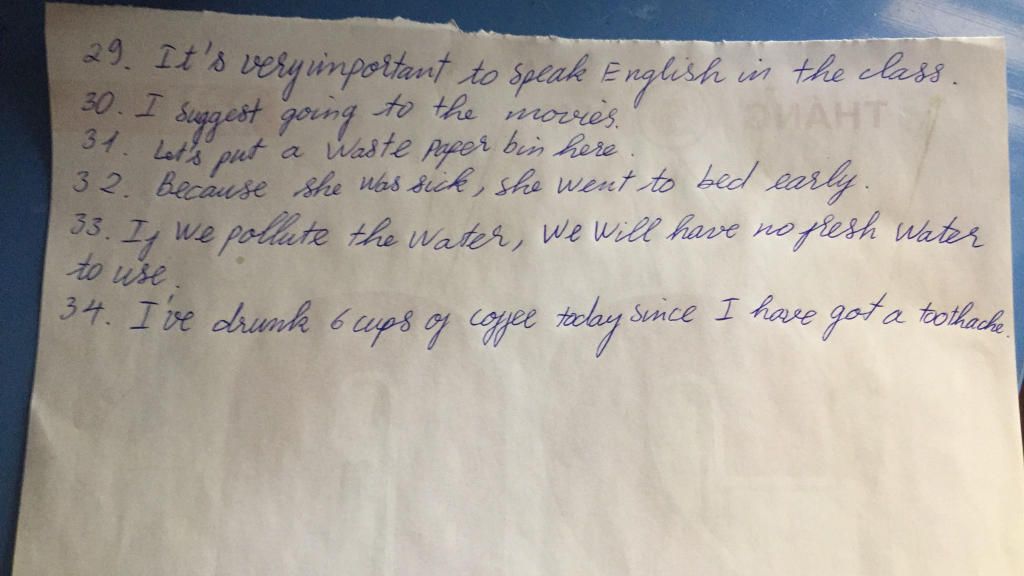 29. It's very important to speak English in the class.
30. I suggest going to the movies.
THÁNG
31. Let's put a waste paper bin here.
32. Because she was sick, she went to bed early.
33. If we pollute the water, we will have no fresh water
to use.
34. I've drunk 6 cups of coffee today since I have got a toothache.